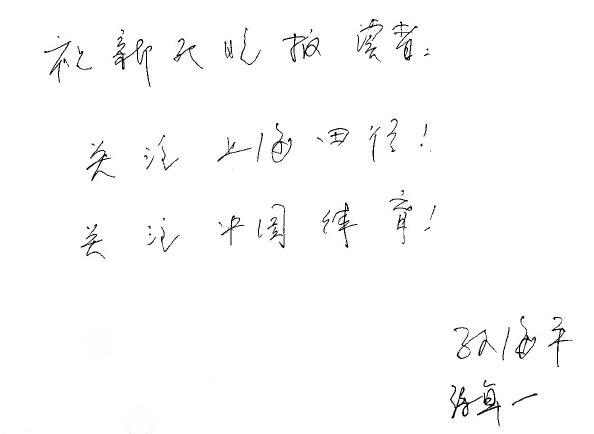 祝新民晚报读者：
关注上海田径！
关注中国体育！
孙海平